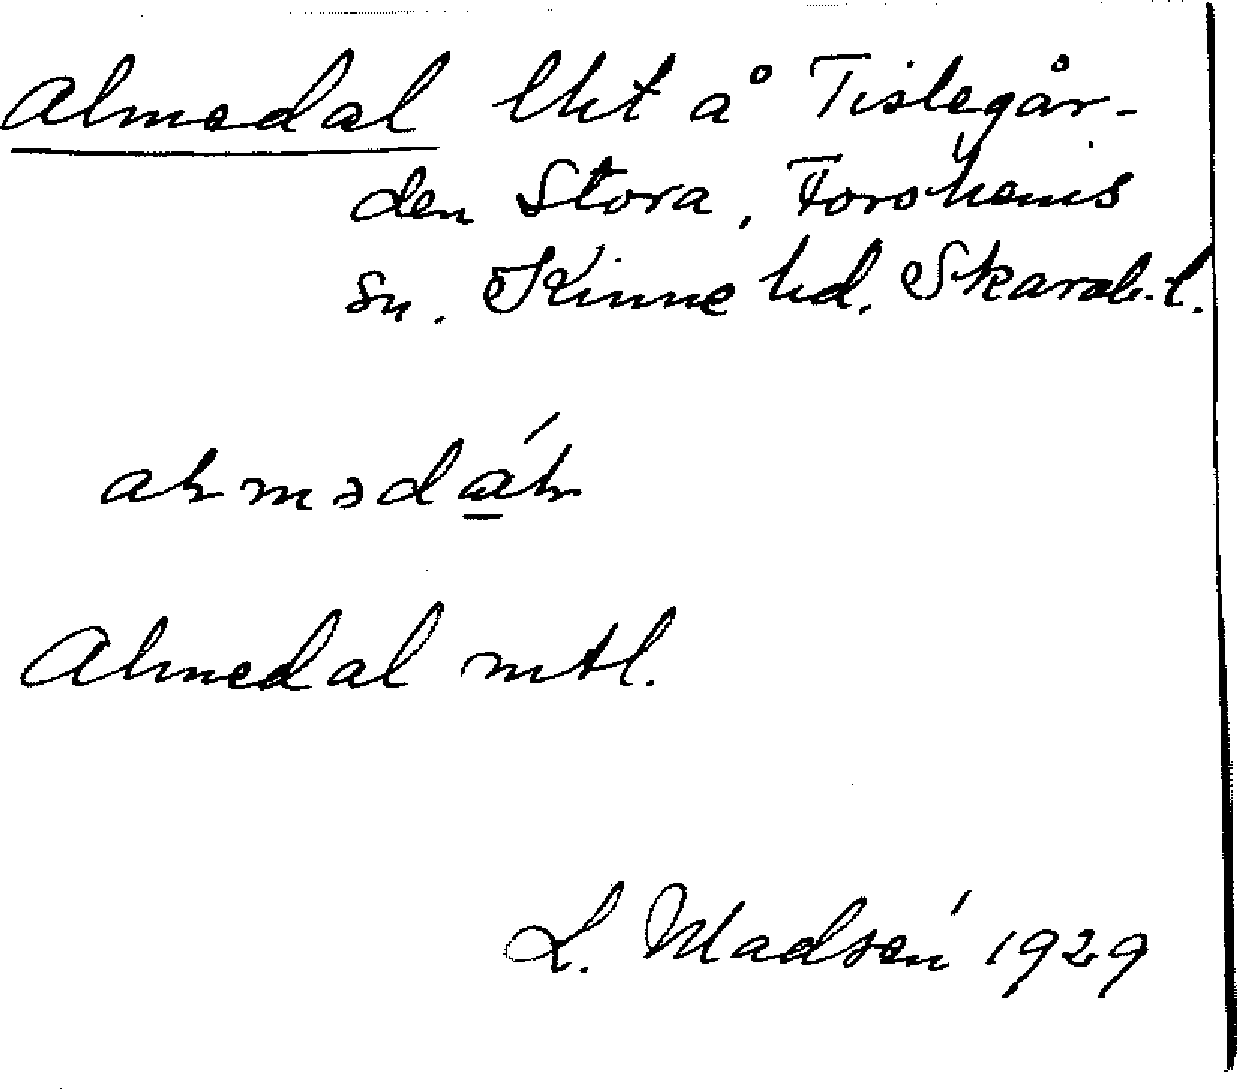 Almedal lht å Tislegår-
den Stora, Forshems
sn. Kinne hd. Skarab.l.
Almedal mtl.
L. Madsén 1929